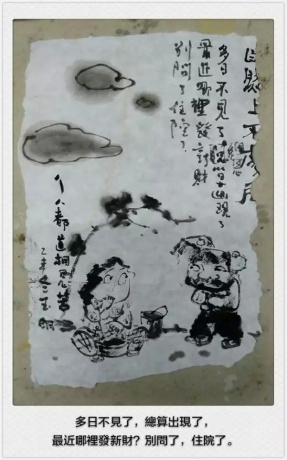 多日不見了總算出現了
最近哪裡發新財
別問了住院了
都道相
乙未冬
多日不見了，總算出現了，
最近哪裡發新財？別問了，住院了。